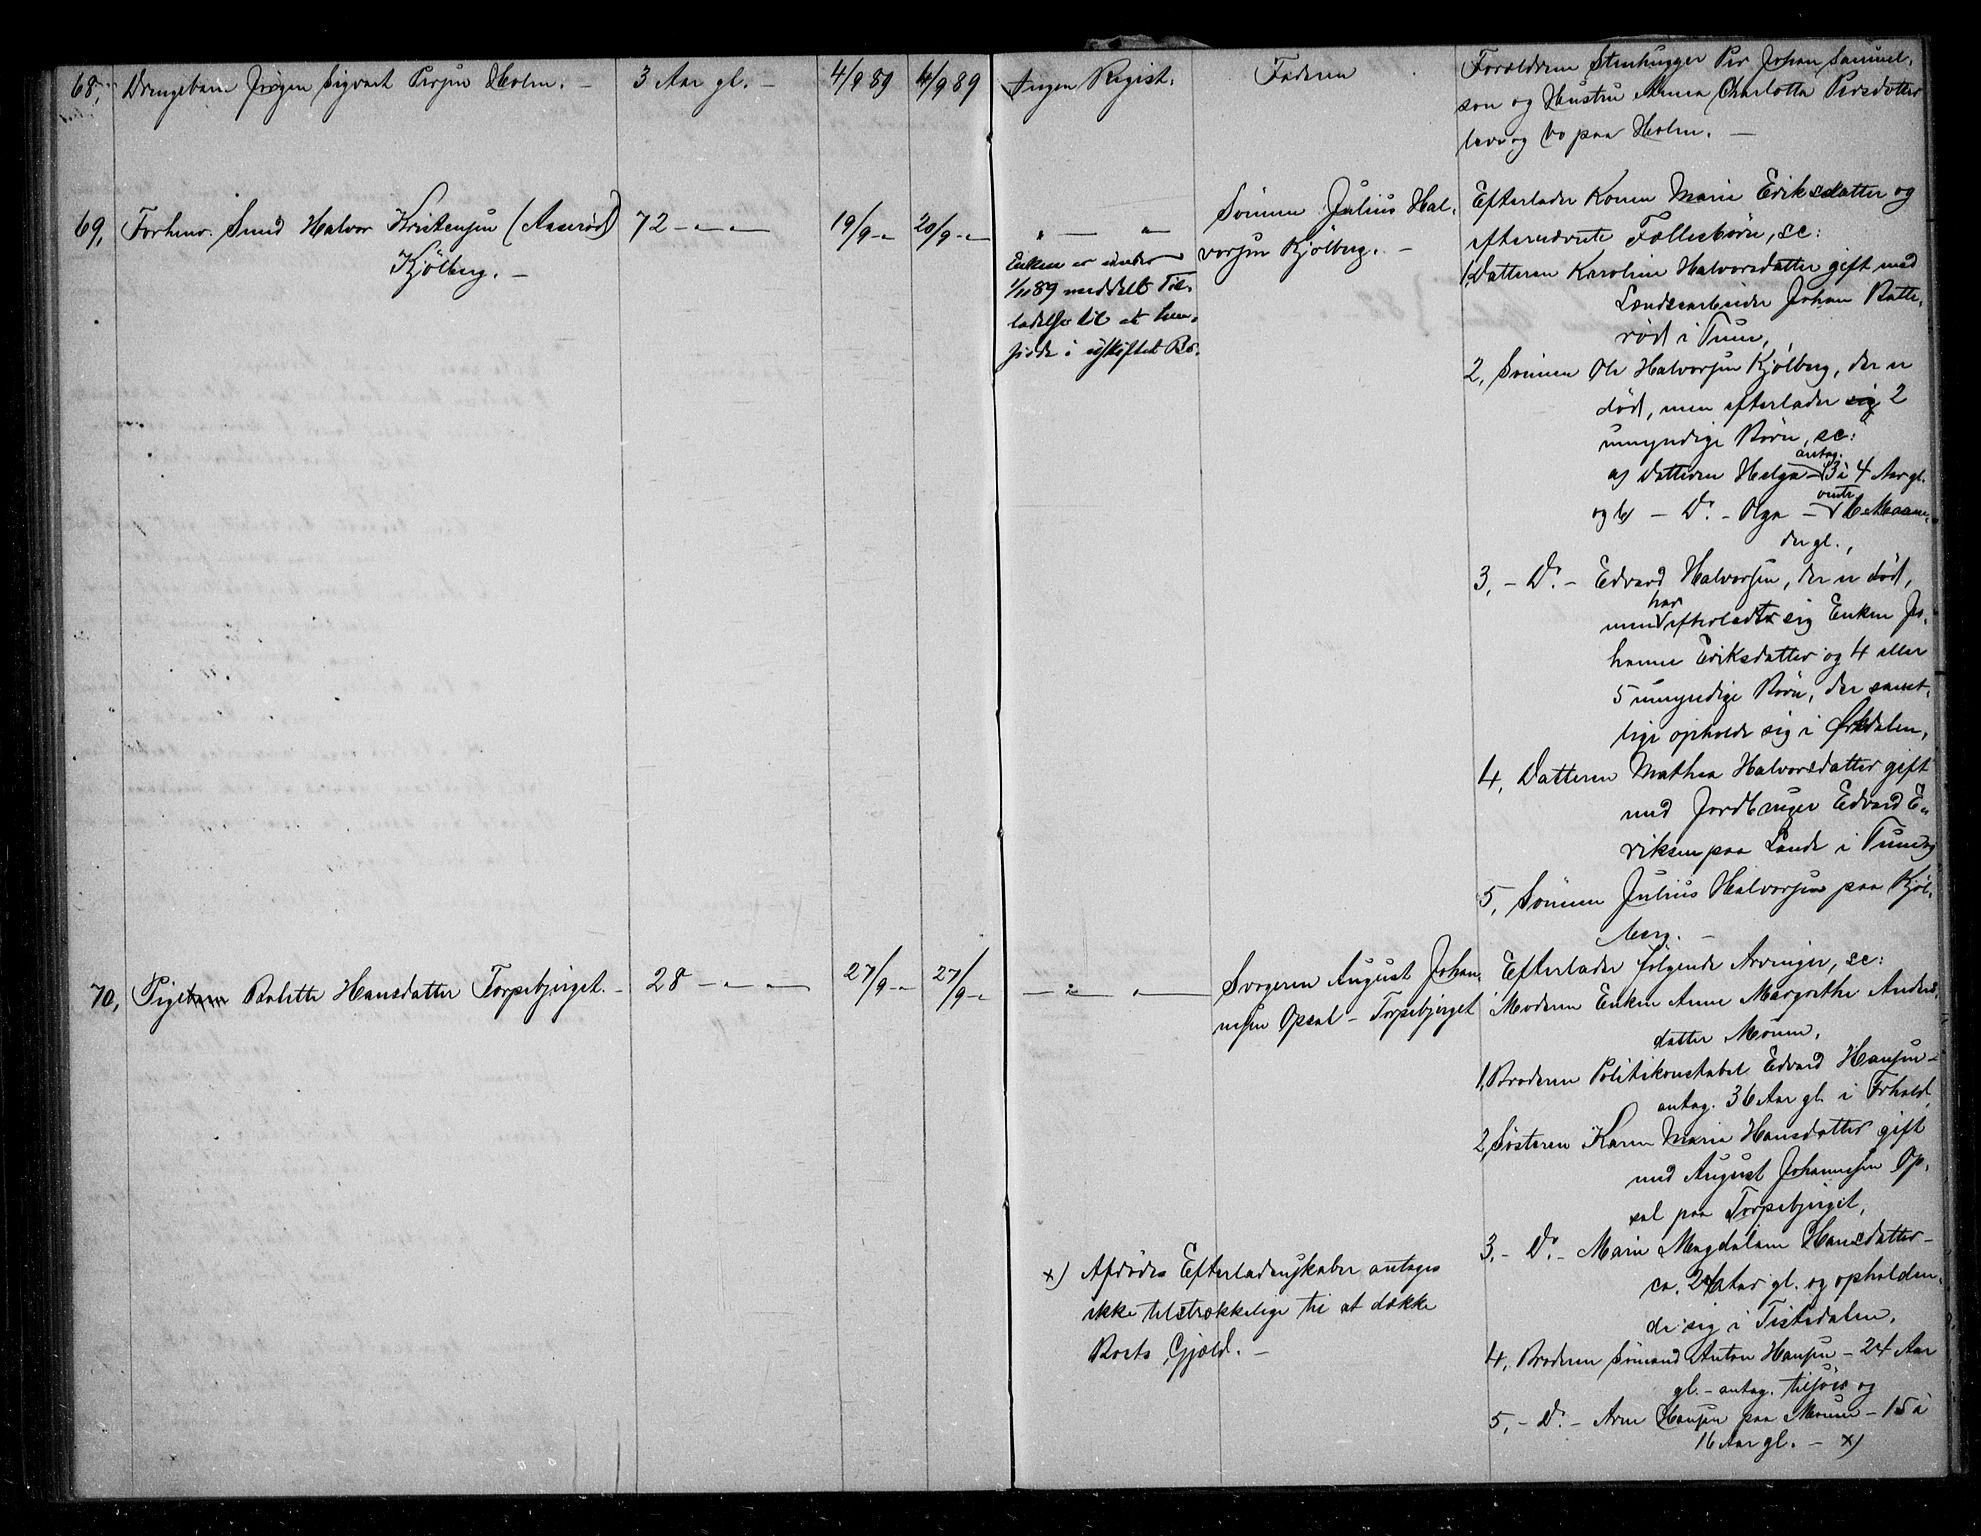 68, Drengebarn Jørgen Sigvart Persen Holm. – 3 Aar gl. – 4/9 89 4/9 89 Ingen Regist. Faderen
Forældrene Stenhugger Per Johan Samuel-
son og Hustru Anna Charlotta Persdatter
leve og bo paa Holm. –
69, Forhenv. Smed Halvor Kristensen (Aaserød)
Kjølberg. –
72 – „ – 19/9 – „ 20/9 – „
„ — „
Enken er under
1/11 89 meddelt Til-
ladelse til at hen-
sidde i uskiftet Bo.
Sønnen Julius Hal-
vorsen Kjølberg. –
Efterlader Konen Marie Eriksdatter og
efternævnte Fællesbørn, sc:
1, Datteren Karoline Halvorsdatter gift med
Landsarbeider Johan Batte-
rød i Tune,
2, Sønnen Ole Halvorsen Kjølberg, der er
død, men efterlader sig 2
umyndige Børn, sc:
a) Datteren Helga – antag. 3 à 4 Aar gl.
og b) – Do. – Olga – omtr. 6 Maane-
der gl.,
3, – Do. – Edvard Halvorsen, der er død,
men har efterladt sig Enken Jo-
hanne Eriksdatter og 4 eller
5 umyndige Børn, der samt-
lige opholde sig i Ørkdalen,
4, Datteren Mathea Halvorsdatter gift
med Jordbruger Edvard E-
riksen paa Lande i Tune og
5, Sønnen Julius Halvorsen paa Kjøl-
berg. –
70, Pigebarn Bolette Hansdatter Torpebjerget. – 28 – „ – 27/9 – „ 27/9 – „
— „ — „ —
Svogeren August Johan-
nesen Opsal – Torpebjerget
Efterlader følgende Arvinger, sc:
Moderen Enken Anne Margrethe Anders-
datter Moum,
1, Broderen Politikonstabel Edvard Hansen –
antag. 36 Aar gl. i Frhald,
2, Søsteren Karen Marie Hansdatter gift
med August Johannesen Op-
sal paa Torpebjerget,
3, – Do. – Marie Magdalene Hansdatter –
ca. 24 Aar gl. og opholden-
de sig i Tistedalen,
4, Broderen Sømand Anton Hansen – 24 Aar
gl. – antag. tilsjøs og
5, – Do. – Arne Hansen paa Moum – 15 à
16 Aar gl. – x)
x) Afdødes Efterladenskaber antages
ikke tilstrækkelige til at dække
Boets Gjæld. –